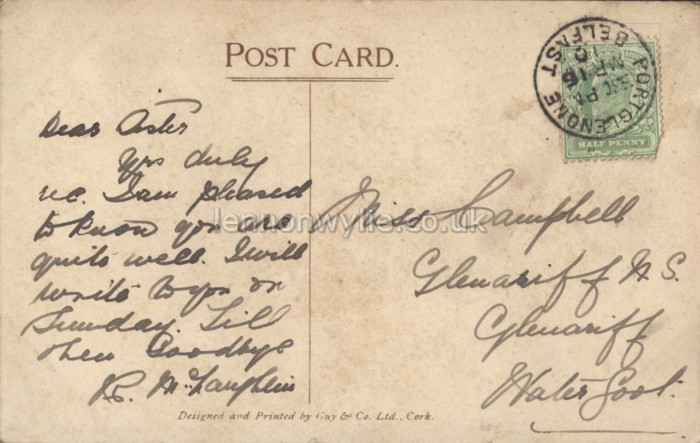 POST CARD.
PORTGLENONE
BELFAST
MR 16
10
HALF PENNY
Dear Sister
Yrs duly
rec. I am pleased
to know you are
quite well. I will
write to you on
Sunday. Till
then Goodbye
R. McLaughlin
Miss Campbell
Glenariff N. S.
Glenariff
Waterfoot.
lennonwylie.co.uk
Designed and Printed by Guy & Co. Ltd., Cork.